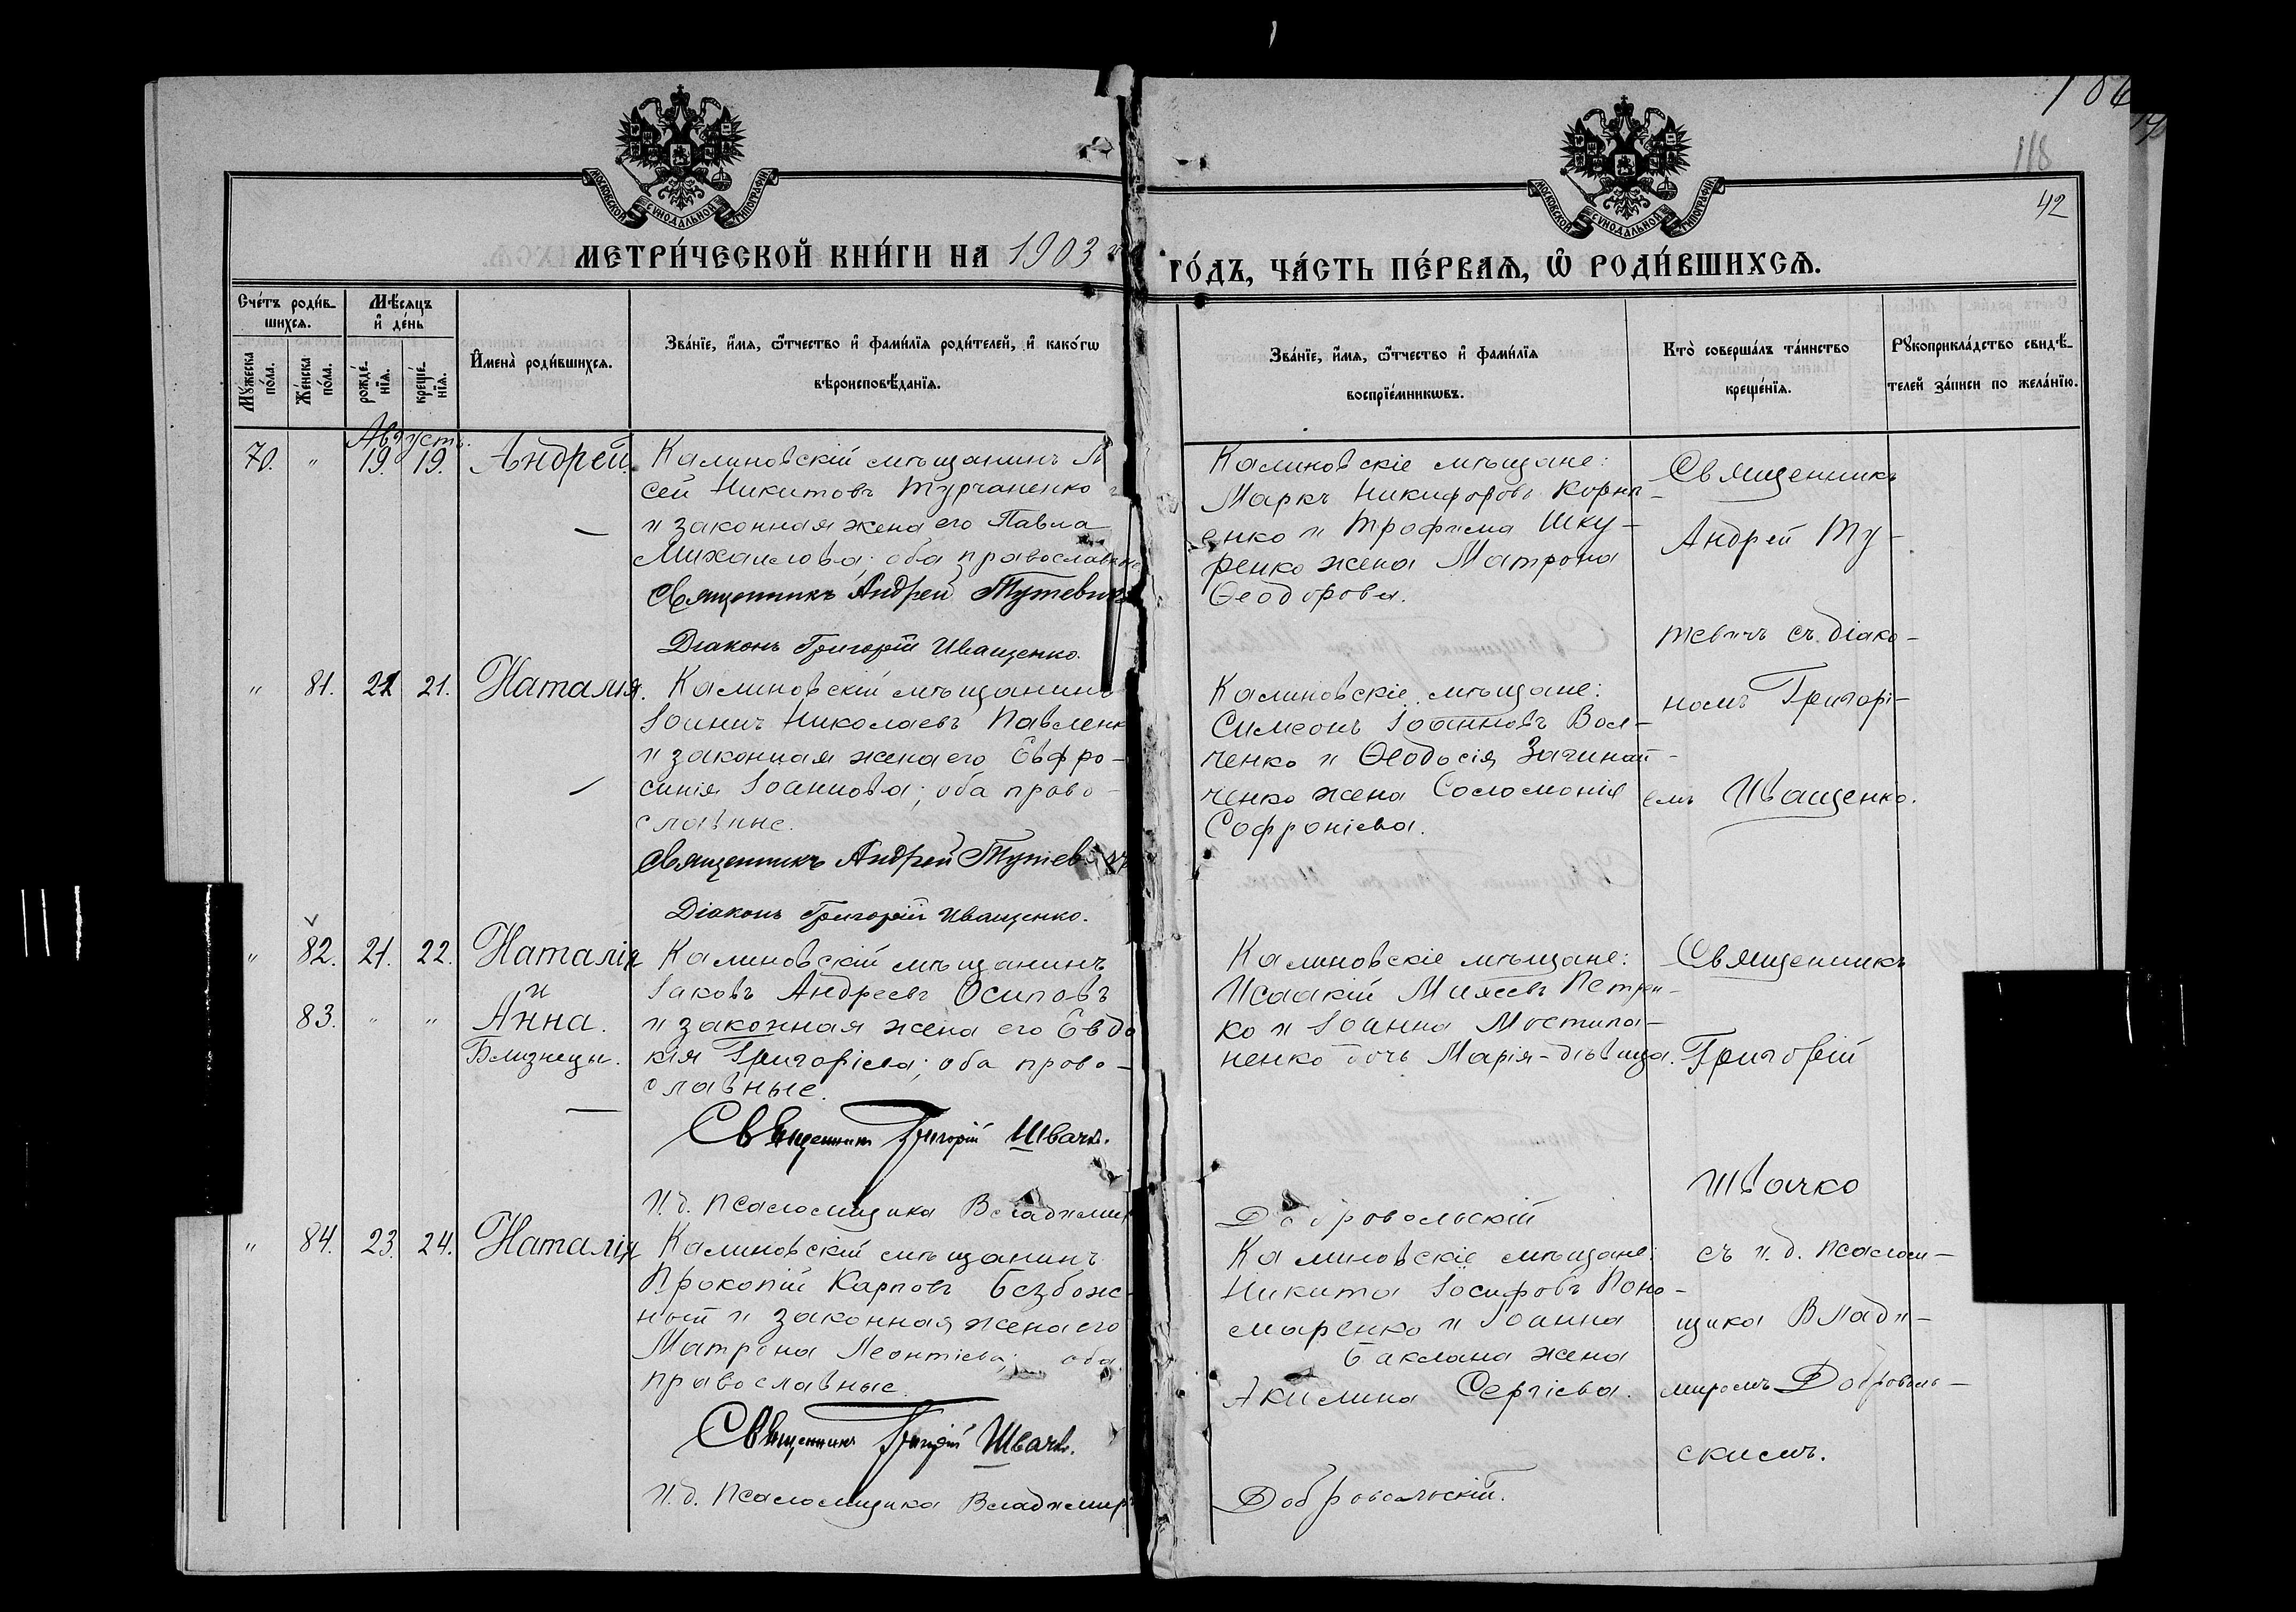 118
42
МОСКОВСКОЙ СѴНОДАЛЬНОЙ ТИПОГРАФІИ
МОСКОВСКОЙ СѴНОДАЛЬНОЙ ТИПОГРАФІИ
МЕТРИ́ЧЕСКОЙ КНИ́ГИ НА 1903
ГО́ДЪ, ЧА́СТЬ ПЕ́РВАѦ, Ѽ РОДИ́ВШИХСѦ.
Сче́тъ роди́в-
шихсѧ.
Мꙋ́жеска по́ла.
Же́нска по́ла.
Мѣ́сѧцъ
и҆ де́нь
рожде́-
нїѧ.
креще́-
нїѧ.
И҆мена̀ роди́вшихсѧ.
Зва́нїе, и҆́мѧ, ѻ҆́тчество и҆ фами́лїѧ роди́телей, и҆ како́гѡ
вѣроисповѣ́данїѧ.
Зва́нїе, и҆́мѧ, ѻ҆́тчество и҆ фами́лїѧ
воспрїе́мникѡвъ.
Кто̀ соверша́лъ та́инство
креще́нїѧ.
Рꙋкоприкла́дство свидѣ́-
телей за́писи по жела́нїю.
Августъ.
70. " 19. 19. Андрей.
Калиновскій мѣщанинъ
сей Никитовъ Турчаненко
и законная жена его Павла
Михаилова; оба православные
Священникъ Андрей Тутевичъ
Діаконъ Григорій Иващенко.
Калиновскіе мѣщане:
Маркъ Никифоровъ Корні-
енко и Трофима Шку-
ренко жена Матрона
Ѳеодорова.
Священникъ
Андрей Ту-
тевичъ съ діако-
номъ Григорі-
емъ Иващенко.
" 81. 21. Наталія.
Калиновскій мѣщанинъ
Іоаннъ Николаевъ Павленк
и законная жена его Евфро-
синія Іоаннова; оба право-
славные.
Священникъ Андрей Тутевичъ
Діаконъ Григорій Иващенко.
Калиновскіе мѣщане:
Симеонъ Іоанновъ Вол-
ченко и Ѳеодосія Зачинай-
ченко жена Соломонія
Софроніева.
" 82. 21. 22. Наталія
и
83. " " Анна.
Близнецы.
Калиновскій мѣщанинъ
Іаковъ Андреевъ Осиповъ
и законная жена его Евдо
кія Григоріева; оба право-
славные.
Священникъ Григорій Швачко.
И. д. псаломщика Владимир
Добровольскій
Калиновскіе мѣщане:
Исаакій Петрен-
ко и Іоанна
ненко дочь Марія-дѣвица.
Священникъ
Григорій
Швачко
съ и. д. псалом-
щика Влади-
миромъ Доброволь-
скимъ.
" 84. 23. 24. Наталія
Калиновскій мѣщанинъ
Прокопій Карповъ Безбож-
ный и законная жена его
Матрона Леонтіева; оба
православные.
Священникъ Григорій Швачко.
И. д. псаломщика Владимиръ
Добровольскій.
Калиновскіе мѣщане:
Никита Іосифовъ Поно-
маренко и Іоанна
Баклана жена
Акилина Сергіева.